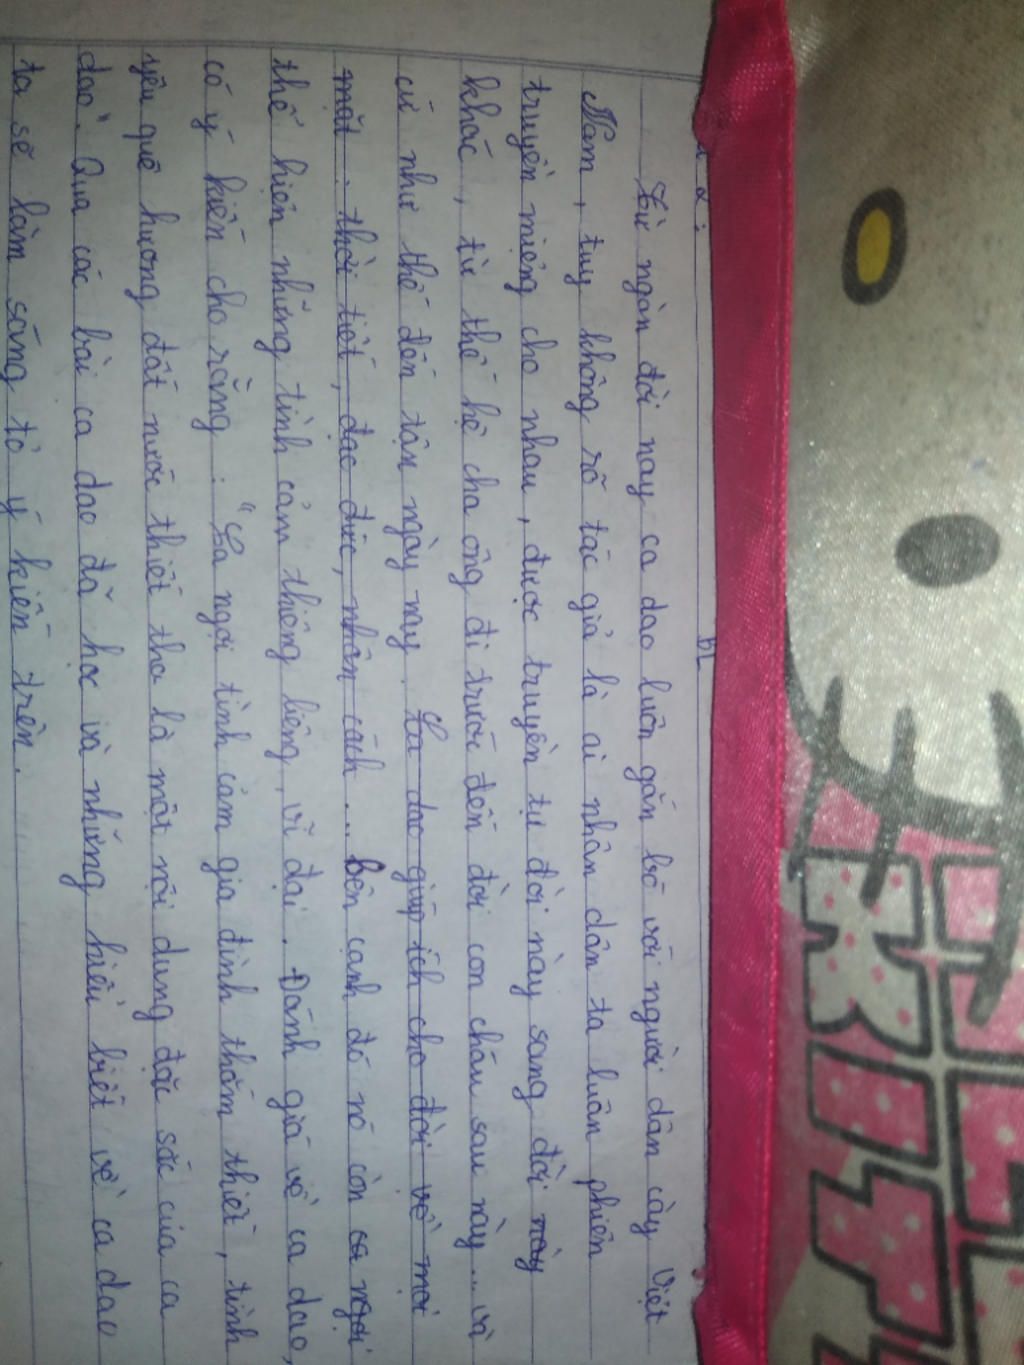 BL
Từ ngàn đời nay ca dao luôn gắn bó với người dân cày Việt
Nam, tuy không rõ tác giả là ai nhân dân ta luân phiên
truyền miệng cho nhau, được truyền từ đời này sang đời này
khác, từ thế hệ cha ông đi trước đến đời con cháu sau này... và
cứ như thế đến tận ngày nay. Ca dao giúp ích cho đời về mọi
mặt: thời tiết, đạo đức, nhân cách... bên cạnh đó nó còn ca ngợi
thể hiện những tình cảm thiêng liêng, vĩ đại. Đánh giá về ca dao,
có ý kiến cho rằng: "Ca ngợi tình cảm gia đình thắm thiết, tình
yêu quê hương đất nước thiết tha là một nội dung đặc sắc của ca
dao". Qua các bài ca dao đã học và những hiểu biết về ca dao
ta sẽ làm sáng tỏ ý kiến trên.
KITT